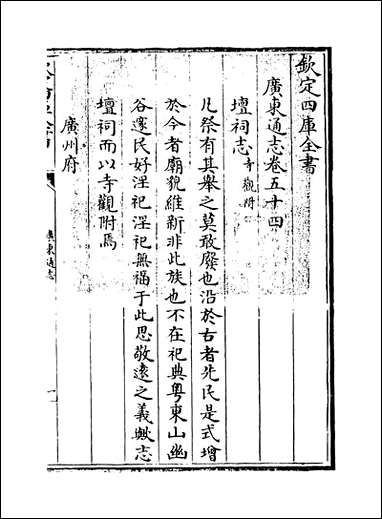 欽定四庫全書
廣東通志卷五十四
壇祠志寺觀附
凡祭有其舉之莫敢廢也沿於古者先民是式增
於今者廟貌維新非此族也不在祀典粵東山幽
谷邃民好淫祀淫祀無福于此思敬遠之義歟志
壇祠而以寺觀附焉
廣州府
廣東通志
一